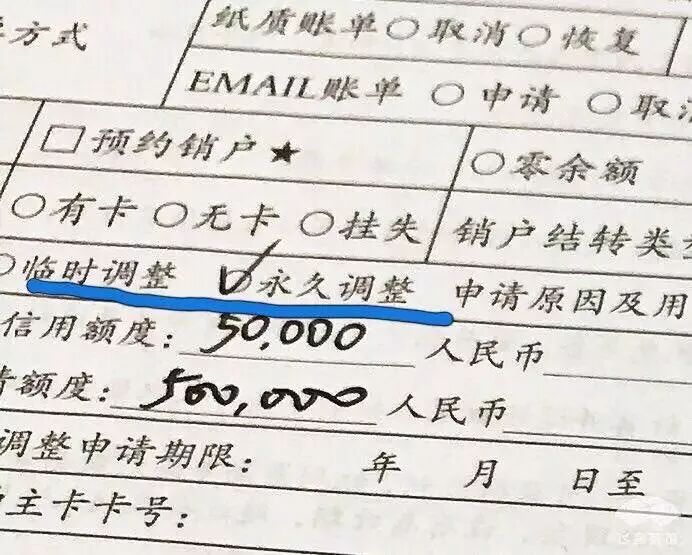 方式
纸质账单○取消○恢复
EMAIL账单 ○申请 ○取消
□预约销户★
○零余额
○有卡○无卡○挂失
销户结转类
○临时调整 ○永久调整 申请原因及用
信用额度：50,000 人民币
额度：500,000 人民币
调整申请期限： 年 月 日至
主卡卡号：